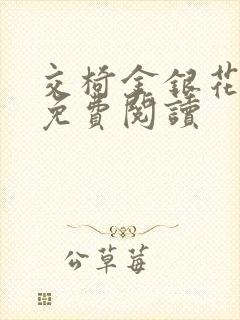 交椅金銀花
免費閱讀
公草莓